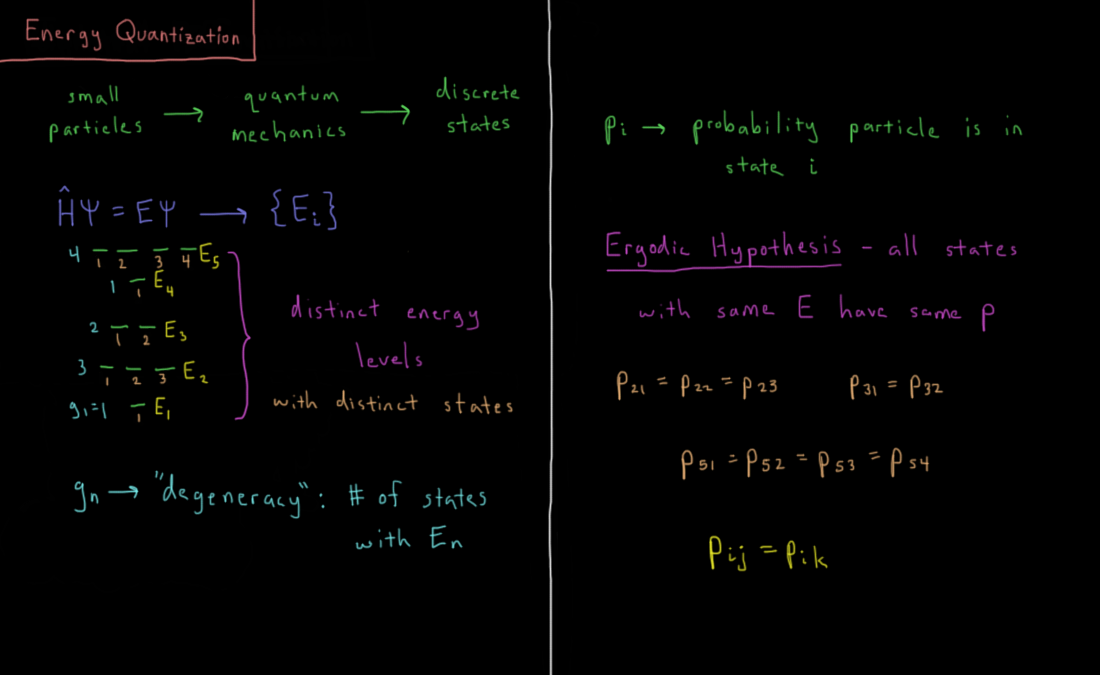 Energy Quantization
small particles → quantum mechanics → discrete states
ĤΨ = EΨ → {Ei}
4 1 2 3 4 E5
1 1 E4
2 1 2 E3
3 1 2 3 E2
g1=1 1 E1
distinct energy
levels
with distinct states
gn → "degeneracy": # of states
with En
pi → probability particle is in
state i
Ergodic Hypothesis - all states
with same E have same p
p21 = p22 = p23 p31 = p32
p51 = p52 = p53 = p54
pij = pik